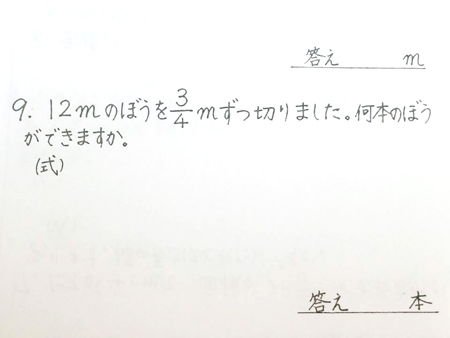 答え m
9. 12mのぼうを3/4mずつ切りました。何本のぼう
ができますか。
(式)
答え 本